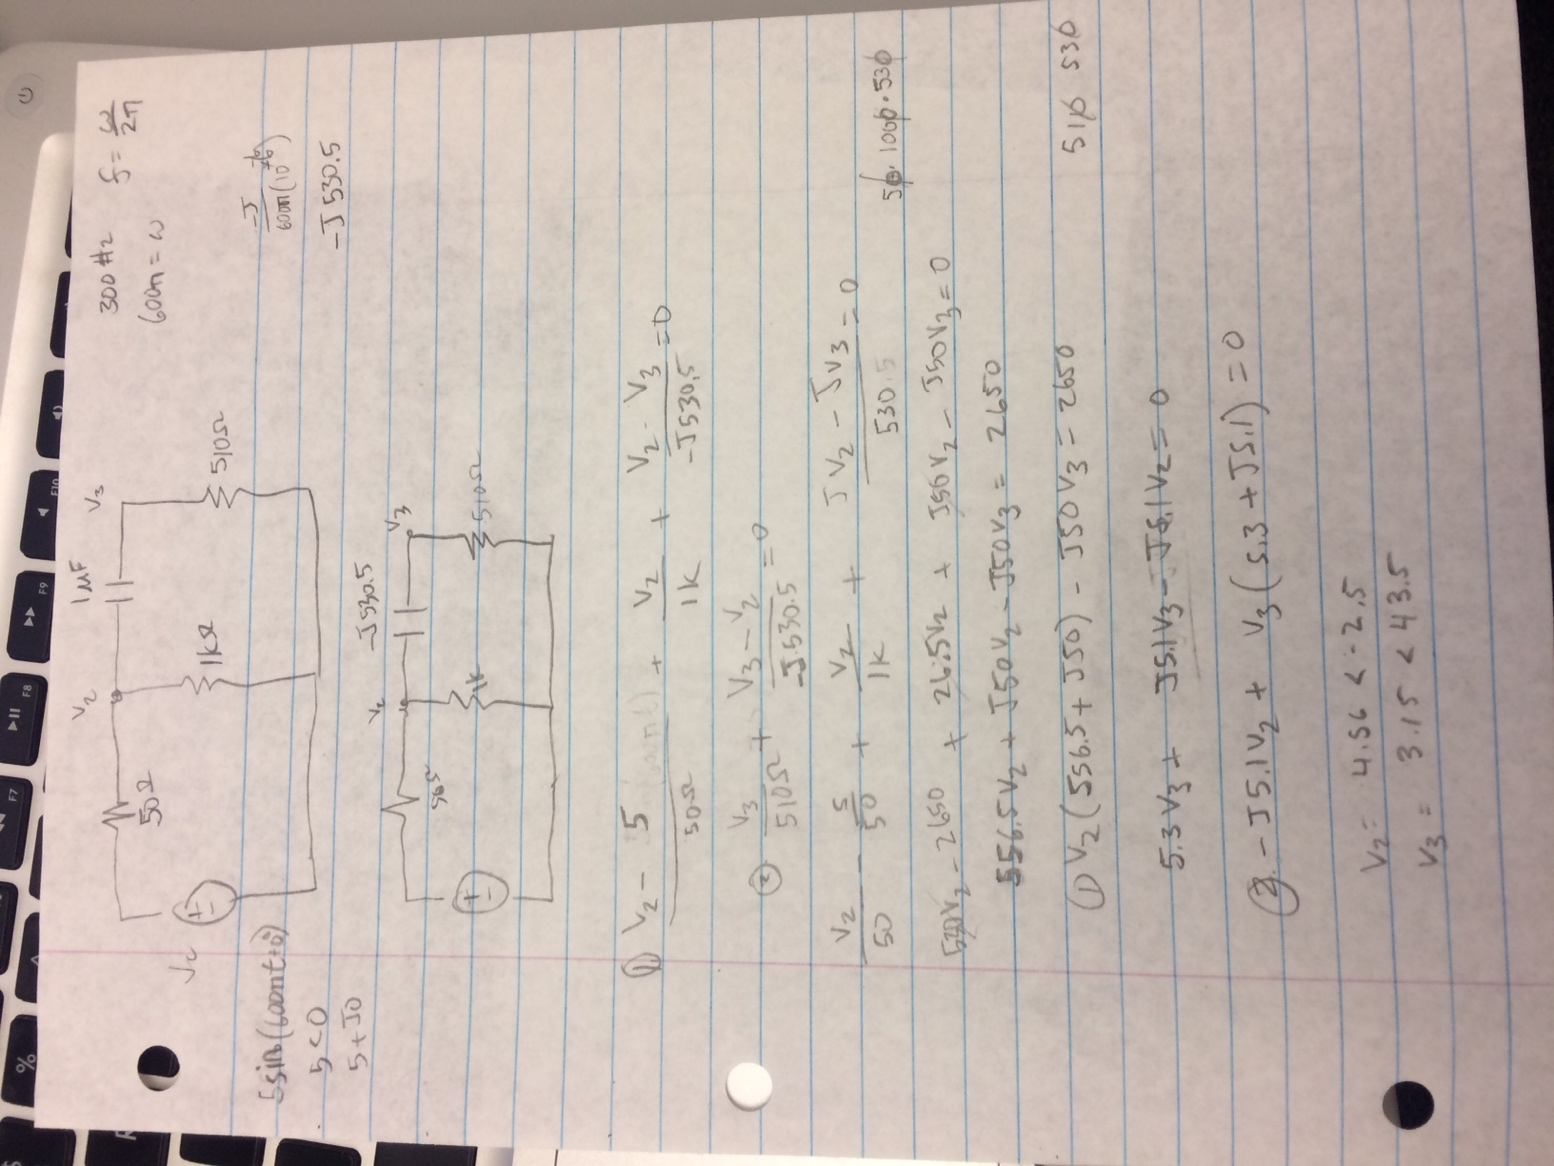 300 Hz f = ω/2π
600π = ω
-J/600π(10^-6)
-J530.5
V2 1μF V3
50Ω 1kΩ 510Ω
5sin(600πt+0)
5<0
5+J0
-J530.5
V3
50Ω 1K 510Ω
① (V2 - 5)/50Ω + V2/1K + (V2 - V3)/-J530.5 = 0
② V3/510Ω + (V3 - V2)/-J530.5 = 0
V2/50 - 5/50 + V2/1K + (JV2 - JV3)/530.5 = 0
50·1000·530
530V2 - 2650 + 26.5V2 + J50V2 - J50V3 = 0
556.5V2 + J50V2 - J50V3 = 2650
① V2(556.5 + J50) - J50V3 = 2650
510 530
5.3V3 + J5.1V3 - J5.1V2 = 0
② -J5.1V2 + V3(5.3 + J5.1) = 0
V2 = 4.56 < -2.5
V3 = 3.15 < 43.5
F7
F8
F9
F10
%